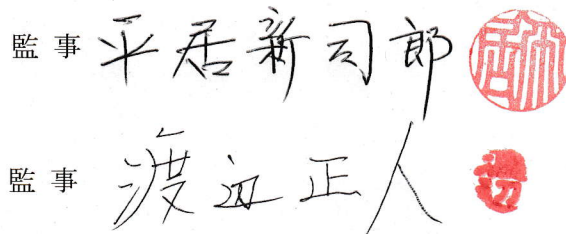 監事 平居新司郎
監事 渡辺正人